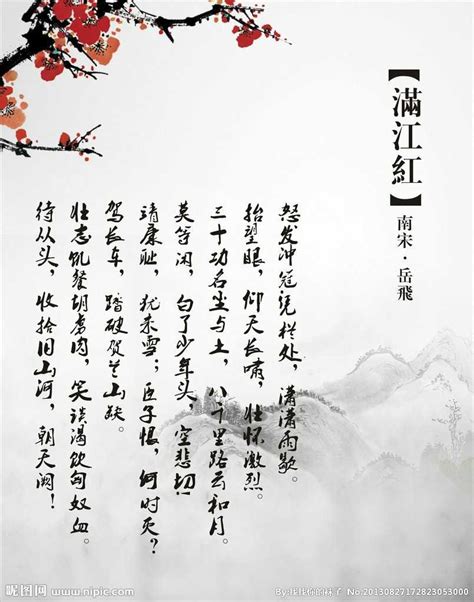 【滿江紅】
南宋·岳飛
怒发冲冠凭栏处，潇潇雨歇。
抬望眼，仰天长啸，壮怀激烈。
三十功名尘与土，八千里路云和月。
莫等闲，白了少年头，空悲切！
靖康耻，犹未雪；臣子恨，何时灭？
驾长车，踏破贺兰山缺。
壮志饥餐胡虏肉，笑谈渴饮匈奴血。
待从头，收拾旧山河，朝天阙！
昵图网 www.nipic.com
By: No:20130827172823053000